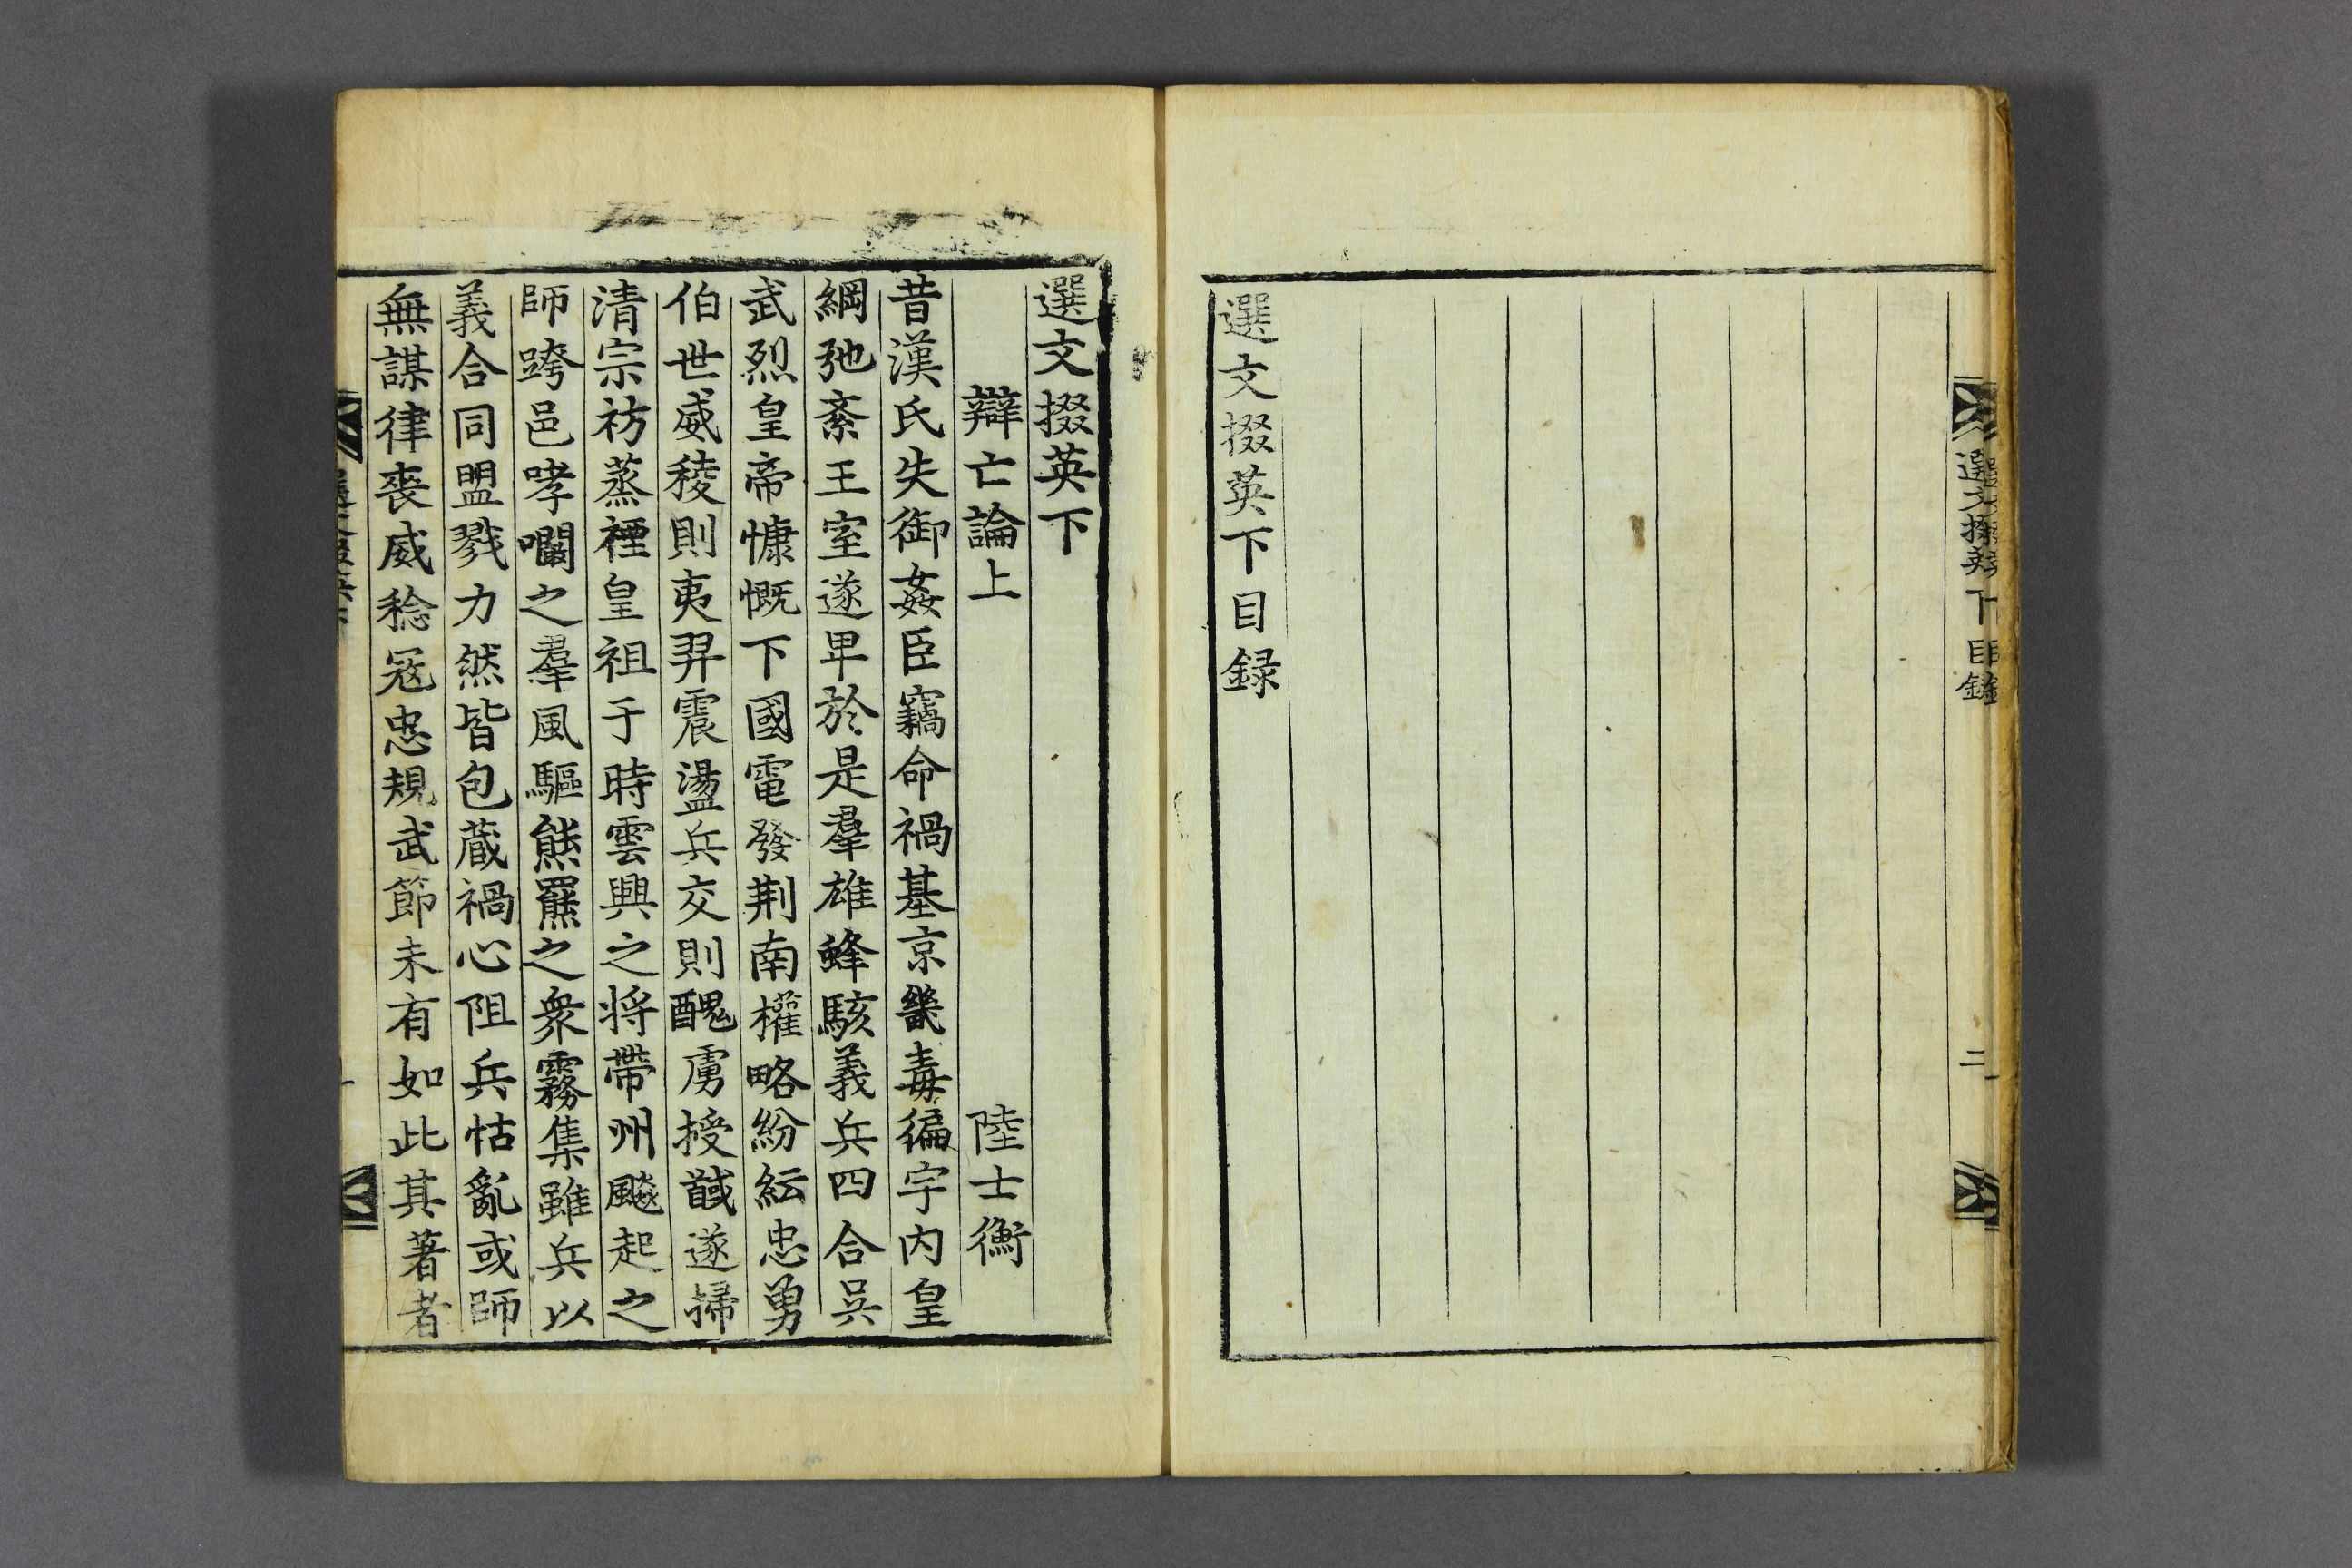 選文掇英下目録
二
選文掇英下
辯亡論上 陸士衡
昔漢氏失御姦臣竊命禍基京畿毒徧宇内皇
綱弛紊王室遂卑於是羣雄蜂駭義兵四合吳
武烈皇帝慷慨下國電發荆南權略紛紜忠勇
伯世威稜則夷羿震盪兵交則醜虜授馘遂掃
清宗祊蒸禋皇祖于時雲興之將帶州飈起之
師跨邑哮㘚之羣風驅熊羆之衆霧集雖兵以
義合同盟戮力然皆包蔵禍心阻兵怙亂或師
無謀律喪威稔寇忠規武節未有如此其著者
選文掇英下目録